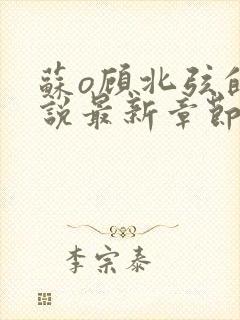 蘇o顧北弦的
說最新章節
李宗泰